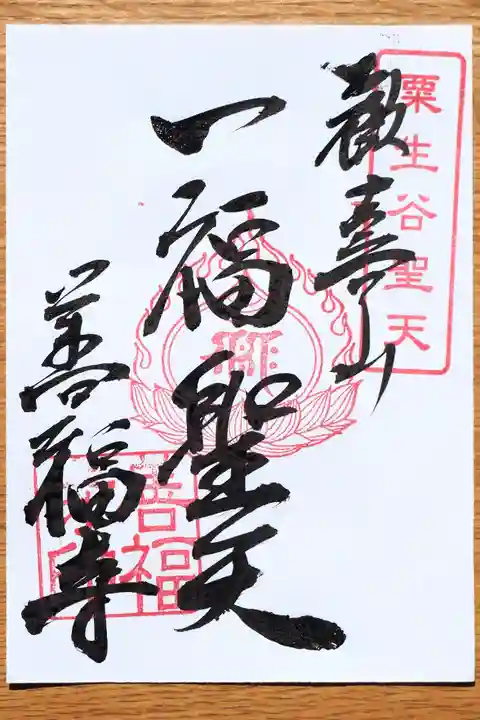 粟生谷聖天
歡喜山
一福聖天
善福寺
善福
寺印